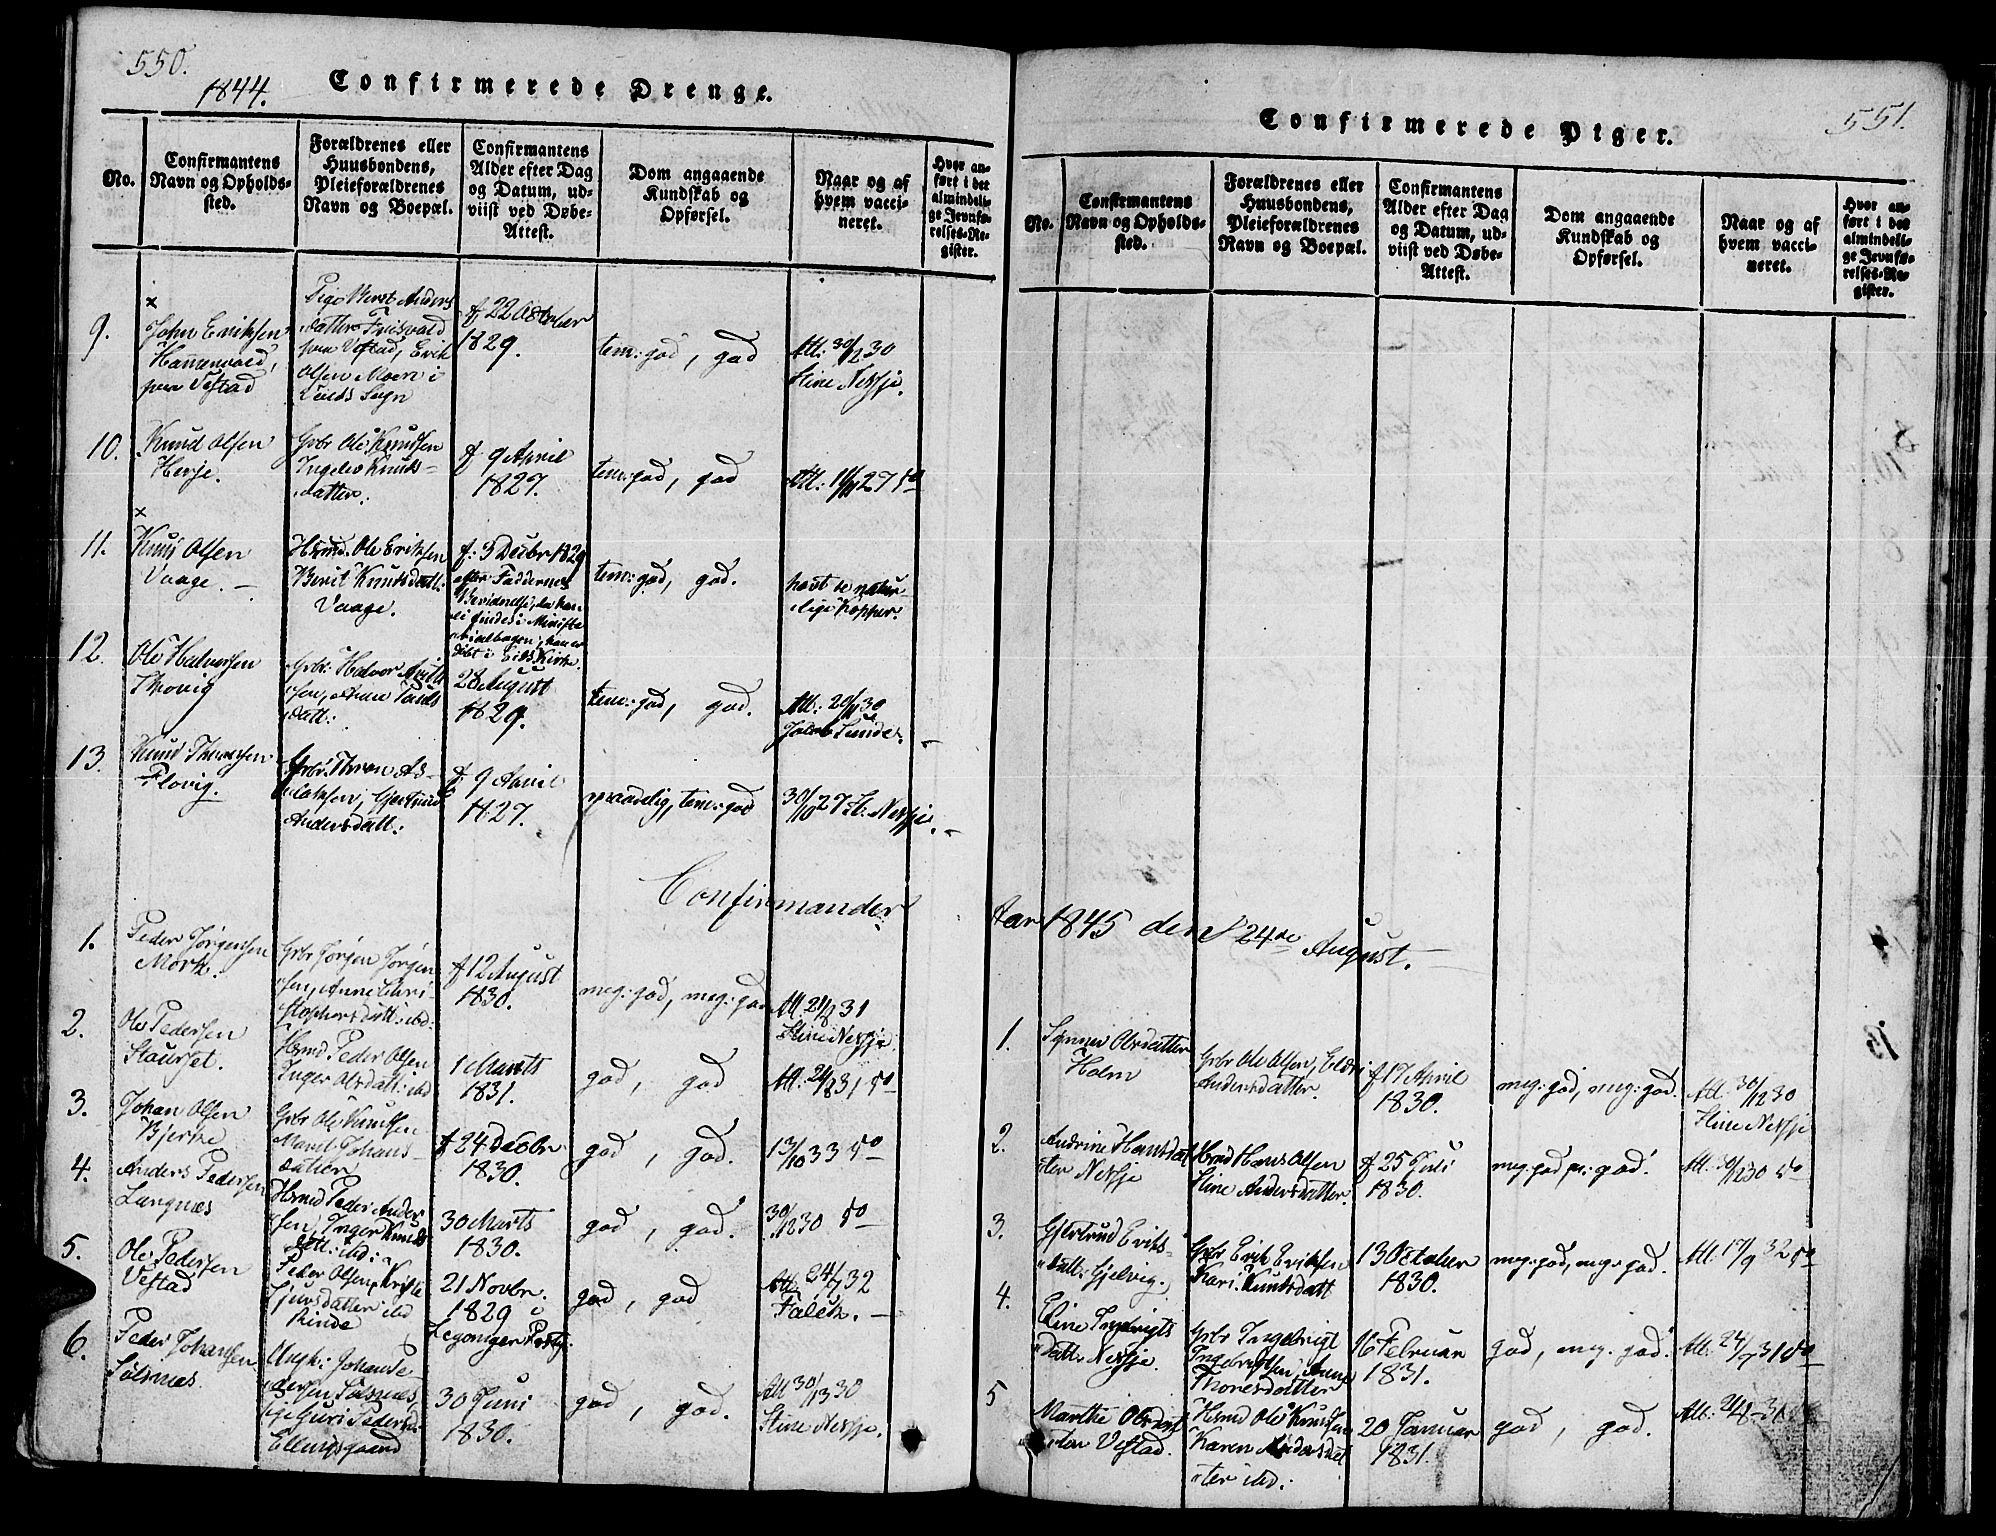 550.
1844.
Confirmerede Drenge.
No.
Confirmantens
Navn og Opholds-
sted.
Forældrenes eller
Huusbondens,
Pleieforældrenes
Navn og Boepæl.
Confirmantens
Alder efter Dag
og Datum, ud-
viist ved Døbe-
Attest.
Dom angaaende
Kundskab og
Opførsel.
Naar og af
hvem vacci-
neret.
Hvor an-
ført i det
almindeli-
ge Jevnfø-
relses-Re-
gister.
9.
John Eriksen
paa Vestad
Pige Beret Anders
datter
paa Vestad, Erik
Olsen Moen i
Sogn
f 22 October
1829.
tem: god, god
Att: 30/12 30
Stine Nesje.
10.
Knud Olsen
Herje.
Grbr Ole Knudsen
Knuds-
datter.
f 9 April
1827.
tem: god, god
Att: 27 So
11.
Knud Olsen
Vaage. —
Hsmd. Ole Eriksen
Berit Knudsdatt:
Vaage.
f: 3 Decbr 1829
efter Faddernes
i Eids Kirke.
tem: god, god.
havt de natur-
lige Kopper.
12.
Ole Halvorsen
Thovig
Grbr: Halvor
datt:
28 August
1829.
tem: god, god.
Att: 30
13.
Knud
Plovig.
Grbr:
Andersdatt:
f. 9 April
1827.
maadelig, tem: god
30/10 27 St. Nesje.
Confirmander
1.
Peder Jørgensen
Mork.
Grbr Jørgen Jørgen-
sen, Anne Chri-
stophersdatt: ibd:
f 12 August
1830.
meg: god, meg: god
Att 21/8 31
Stine Nesje.
2.
Ole Pedersen
Staurset.
Hsmd Peder Olsen
Inger Olsdatt: ibd
1 Marts
1831.
god, god
Att. 24/8 31 So
3.
Johan Olsen
Bjerke
Grbr Ole Knudsen
Johans-
datter
f 24 Decbr
1830.
god, god.
13/10 33 So
4.
Anders Pedersen
Langnæs
Hsmd Peder Ander-
sen, Inger Knuds
datt: ibd:
30 Marts
1830.
god, god.
30/12 30 So
5.
Ole Pedersen
Vestad
Peder Olsen,
ibd
Rinde
21 Novbr.
1829 i
god, god
Att. 24/7 32
Falck. —
6.
Peder Johansen
Solsnæs.
Ungk: Johan Pe-
dersen Solsnæs,
Guri Peders
Ellingsgaard
30 Juni
1830.
god, god.
Att 30/12 30
Stine Nesje.
551.
Confirmerede Piger.
No.
Confirmantens
Navn og Opholds-
sted.
Forældrenes eller
Huusbondens,
Pleieforældrenes
Navn og Boepæl.
Confirmantens
Alder efter Dag
og Datum, ud-
viist ved Døbe-
Attest.
Dom angaaende
Kundskab og
Opførsel.
Naar og af
hvem vacci-
neret.
Hvor an-
ført i det
almindeli-
ge Jevnfø-
relses-Re-
gister.
Aar 1845 den 24de August. —
1.
Olsdatter
Holm
Grbr Ole Olsen, Eldri
Andersdatter.
f 17 April
1830.
meg: god, meg: god.
Att. 30/12 30
Stine Nesje
2.
Andrine Hansdat
ter Nesje
Hsmd Hans Olsen
Stine Andersdatter.
f 25 Juli
1830.
meg: god, god.
Att. 30/12 30 So
3.
Gjertrud Eriks-
datt: Gjelvig.
Grbr Erik Eriksen
Kari Knutsdatt
13 October
1830.
meg: god, meg: god.
Att. 17/9 32 So
4.
Eline Ingebrigts
datt: Nesje.
Grbr Ingebrigt
Ingebrigtsen, Anne
Thoresdatter
16 Februar
1831.
god, meg. god.
Att. 24/7 31 So
5
Marthe Olsdat
ter Vestad.
Hsmd Ole Knudsen
Karen Andersdat
ter ibd:
20 Januar
1831.
god, god.
Att: 24/8 31 So